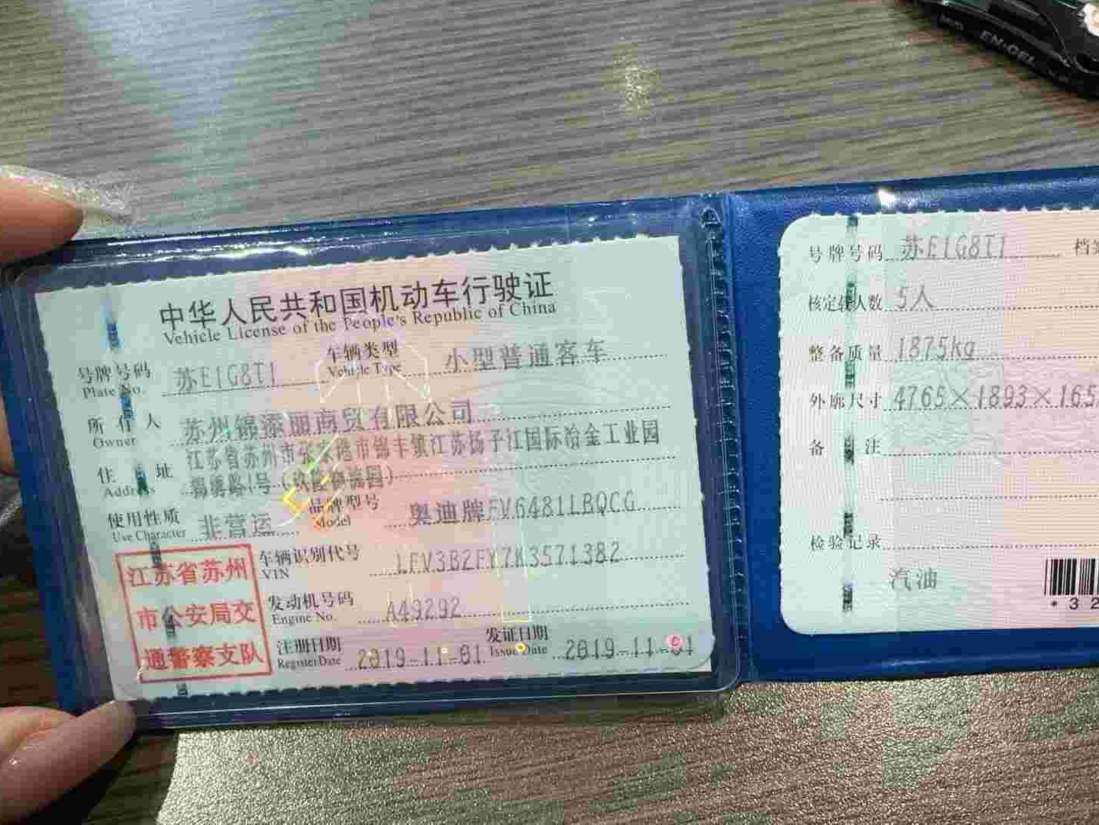 EN·GEL
中华人民共和国机动车行驶证
Vehicle License of the People's Republic of China
号牌号码 苏E1G8T1 车辆类型 小型普通客车
Plate No. Vehicle Type
所有人 苏州锦添丽商贸有限公司
Owner
住址 江苏省苏州市张家港市锦丰镇江苏扬子江国际冶金工业园
Address 锦绣路1号
使用性质 非营运 品牌型号 奥迪牌FV6481LBQCG
Use Character Model
车辆识别代号 LFV3B2FY7K3571382
VIN
发动机号码 A49292
Engine No.
注册日期 2019-11-01 发证日期 2019-11-01
Register Date Issue Date
江苏省苏州
市公安局交
通警察支队
号牌号码 苏E1G8T1 档案
核定载人数 5人
整备质量 1875kg
外廓尺寸 4765×1893×165
备注
检验记录
汽油
*32